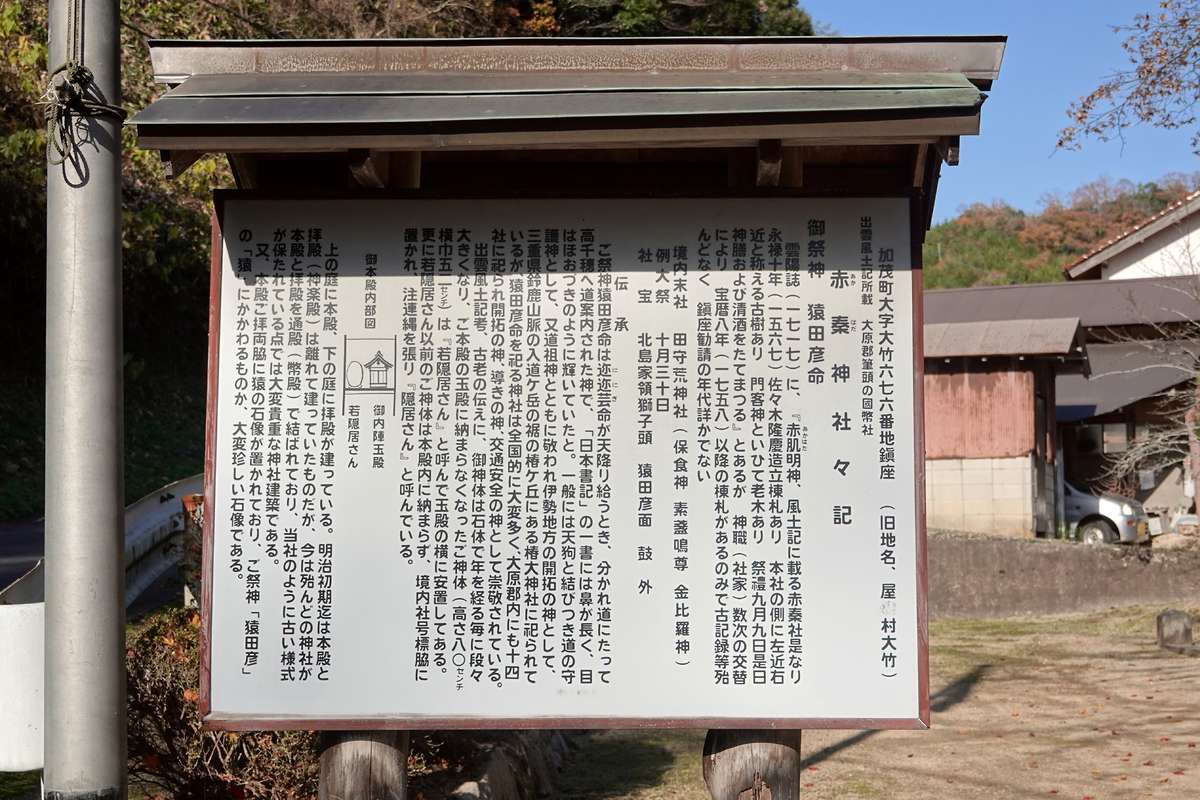 加茂町大字大竹六七六番地鎮座 (旧地名、屋 村大竹)
出雲風土記所載 大原郡筆頭の國幣社
赤秦神社々記
あか はた
御祭神 猿田彦命
雲陽誌(一七一七)に、『赤肌明神、風土記に載る赤秦社是なり
あかはだ
永禄十年(一五六七)佐々木隆慶造立棟札あり 本社の側に左近右
近と称える古樹あり 門客神といひて老木あり 祭禮九月九日是日
神膳および清酒をたてまつる』とあるが 神職(社家)数次の交替
により 宝暦八年(一七五八)以降の棟札があるのみで古記録等殆
んどなく 鎮座勧請の年代詳かでない
境内末社 田守荒神社(保食神 素盞鳴尊 金比羅神)
例大祭 十月三十日
社宝 北島家領獅子頭 猿田彦面 鼓 外
伝承
ご祭神猿田彦命は迩迩芸命が天降り給うとき、分かれ道にたって
ににぎ
高千穂へ道案内された神で、「日本書記」の一書には鼻が長く、目
はほおづきのように輝いていたと。一般には天狗と結びつき道の守
護神として、又道祖神とともに敬われ伊勢地方の開拓の神として、
三重県鈴鹿山脈の入道ケ岳の裾の椿ケ丘にある椿大神社に祀られて
いるが猿田彦命を祀る神社は全国的に大変多く、大原郡内にも十四
社に祀られ開拓の神、導きの神、交通安全の神として崇敬されている。
出雲風土記考、古老の伝えに、御神体は石体で年を経る毎に段々
大きくなり、ご本殿の玉殿に納まらなくなったご神体(高さ八〇センチ
横巾五二センチ)は『若隠居さん』と呼んで玉殿の横に安置してある。
更に若隠居さん以前のご神体は本殿内に納まらず、境内社号標脇に
置かれ、注連縄を張り『隠居さん』と呼んでいる。
御本殿内部図
御内陣玉殿
若隠居さん
上の庭に本殿、下の庭に拝殿が建っている。明治初期迄は本殿と
拝殿(神楽殿)は離れて建っていたものだが、今は殆んどの神社が
本殿と拝殿を通殿(幣殿)で結ばれており、当社のように古い様式
が保たれている点では大変貴重な神社建築である。
又、本殿ご拝両脇に猿の石像が置かれており、ご祭神「猿田彦」
の「猿」にかかわるものか、大変珍しい石像である。